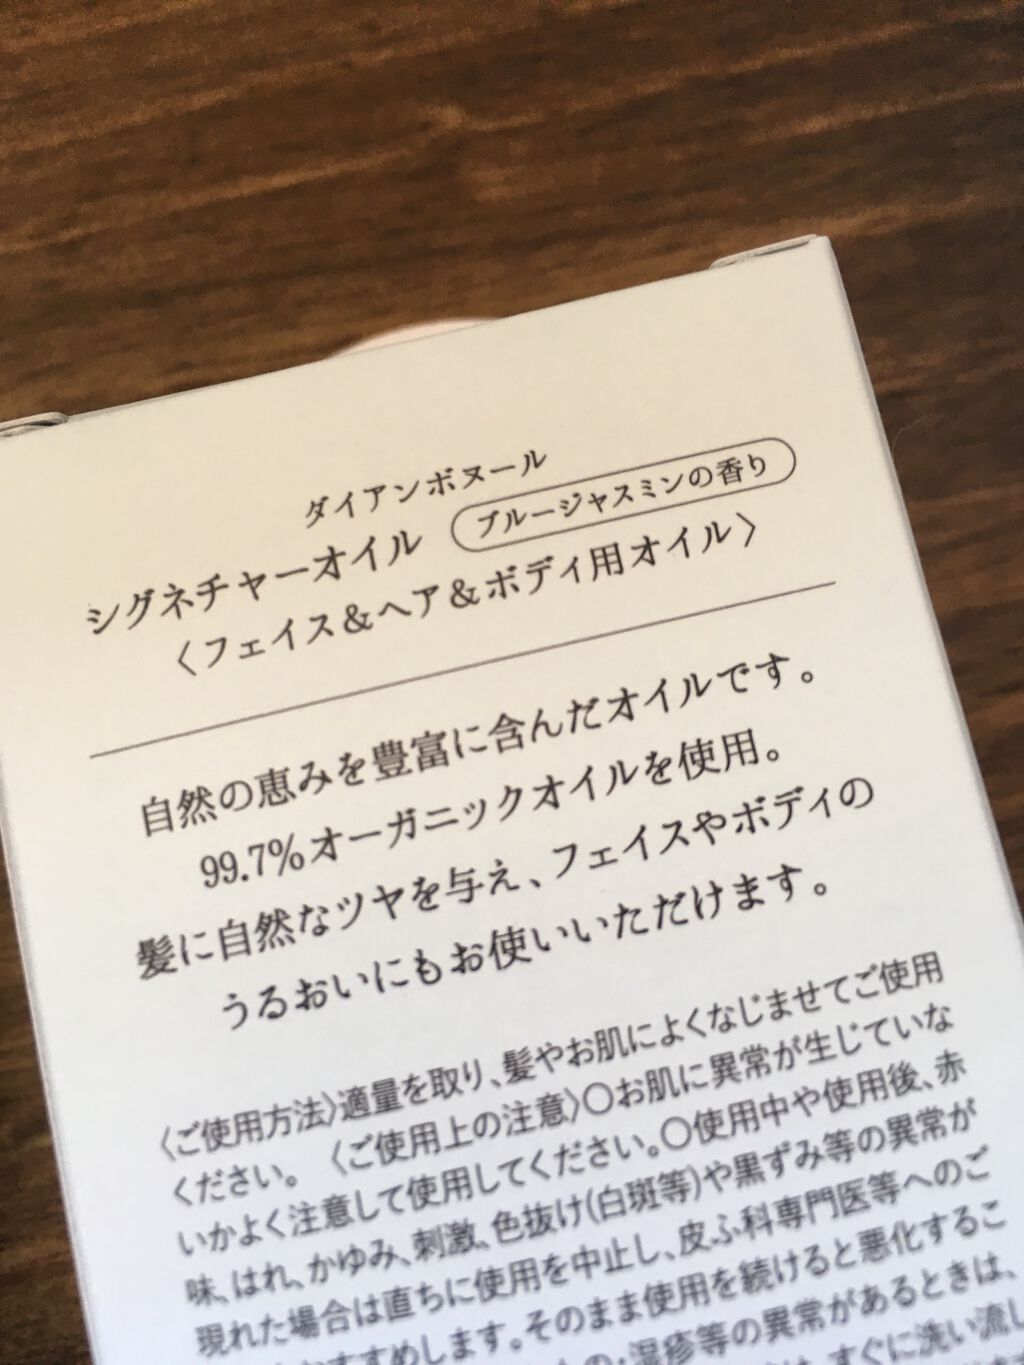 ダイアンボヌール
シグネチャーオイル ブルージャスミンの香り
〈フェイス&ヘア&ボディ用オイル〉
自然の恵みを豊富に含んだオイルです。
99.7%オーガニックオイルを使用。
髪に自然なツヤを与え、フェイスやボディの
うるおいにもお使いいただけます。
〈ご使用方法〉適量を取り、髪やお肌によくなじませてご使用
ください。 〈ご使用上の注意〉○お肌に異常が生じていな
いかよく注意して使用してください。○使用中や使用後、赤
味、はれ、かゆみ、刺激、色抜け(白斑等)や黒ずみ等の異常が
現れた場合は直ちに使用を中止し、皮ふ科専門医等へのご
すすめします。そのまま使用を続けると悪化するこ
の・湿疹等の異常があるときは、
すぐに洗い流し